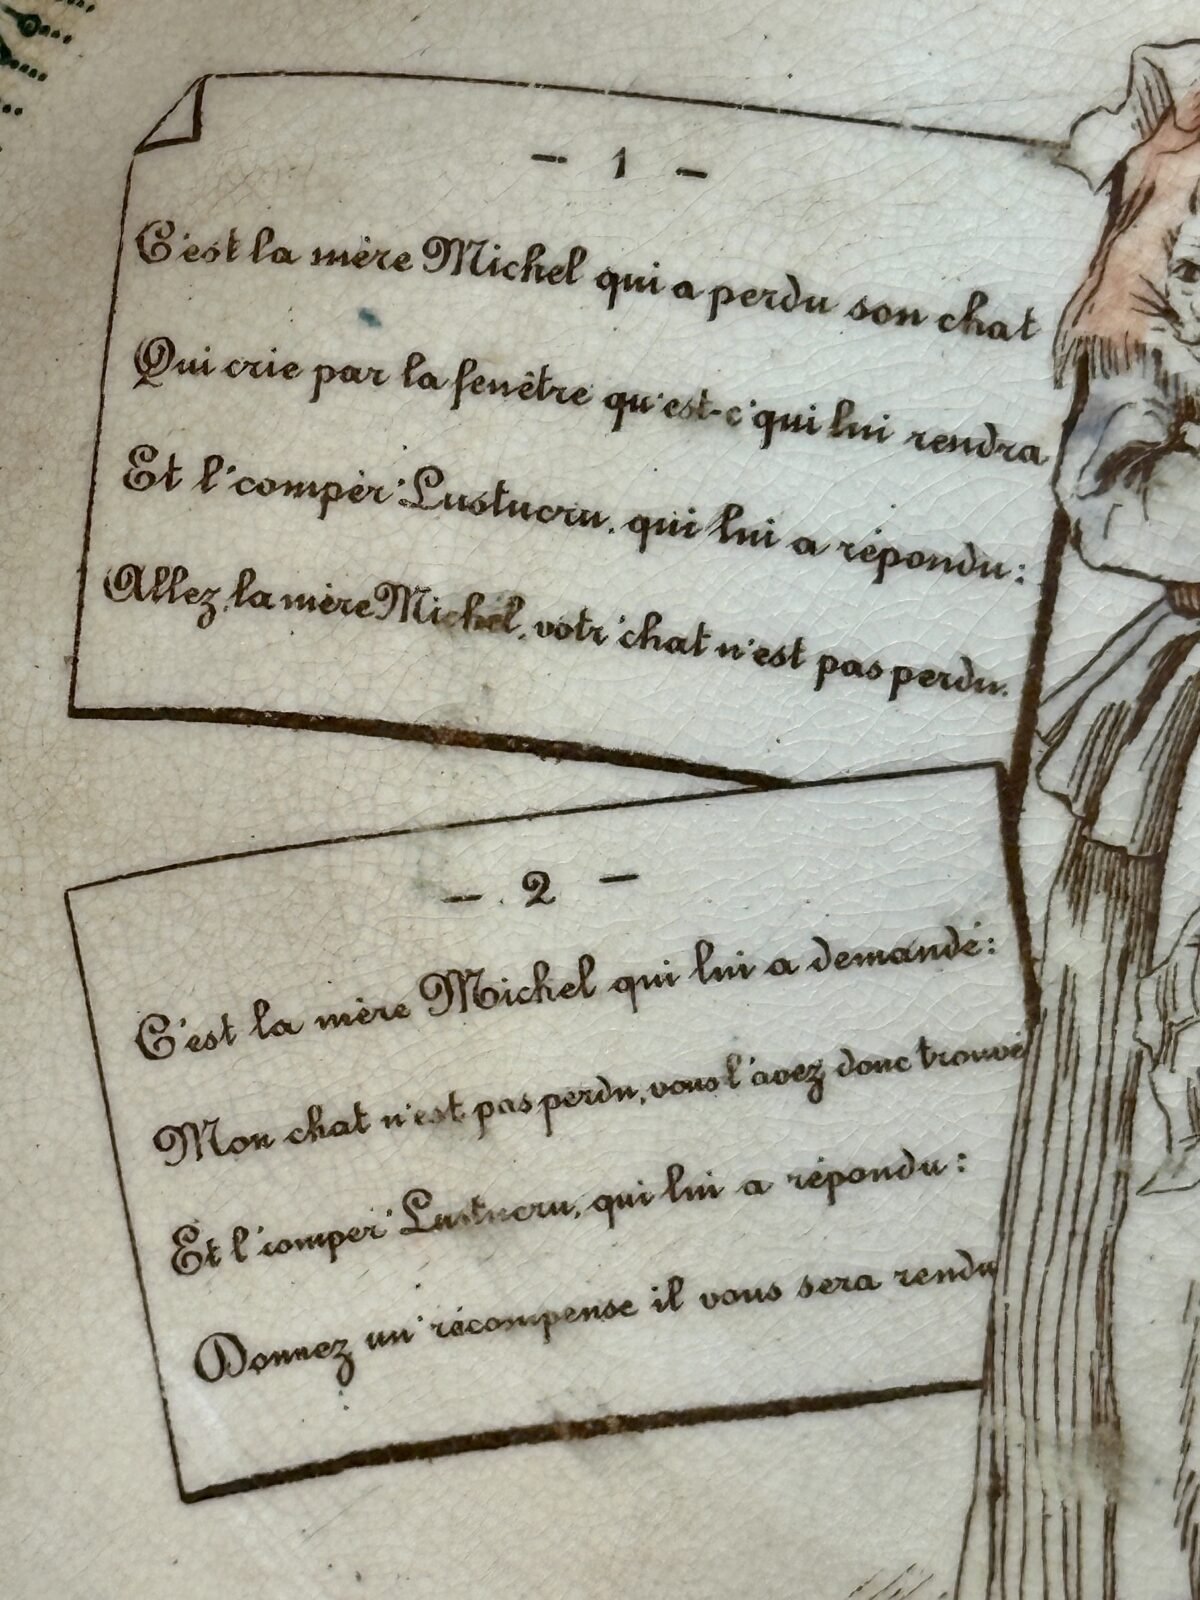 - 1 -
C'est la mère Michel qui a perdu son chat
Qui crie par la fenêtre qu'est-c'qui lui rendra
Et l'compèr' Lustucru, qui lui a répondu:
Allez, la mère Michel, votr'chat n'est pas perdu.
- 2 -
C'est la mère Michel qui lui a demandé:
Mon chat n'est pas perdu, vous l'avez donc trouvé
Et l'compèr' Lustucru, qui lui a répondu:
Donnez un' récompense il vous sera rendu